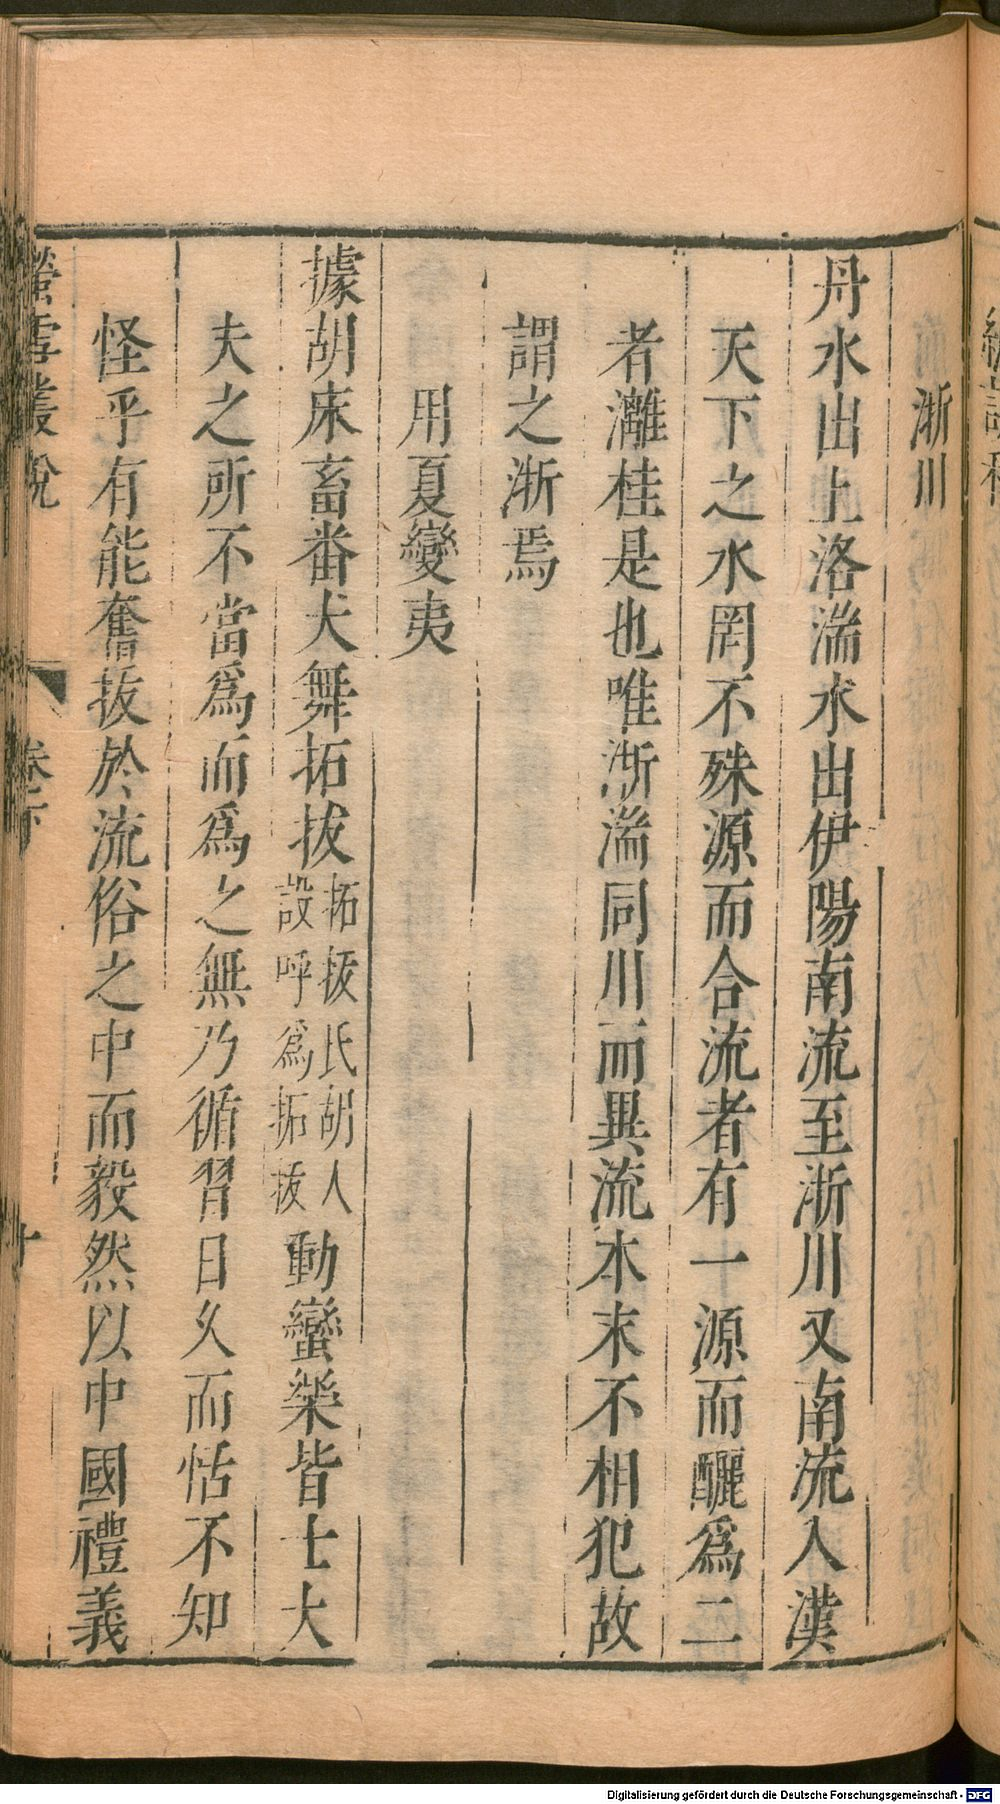 淅川
丹水出上洛湍水出伊陽南流至淅川又南流入漢
天下之水罔不殊源而合流者有一源而釃爲二
者灕桂是也唯淅湍同川而異流本末不相犯故
謂之淅焉
用夏變夷
據胡床畜番犬舞拓拔拓拔氏胡人設呼爲拓拔動蠻樂皆士大
夫之所不當爲而爲之無乃循習日久而恬不知
怪乎有能奮拔於流俗之中而毅然以中國禮義
螢雪叢說 卷下 十
Digitalisierung gefördert durch die Deutsche Forschungsgemeinschaft - DFG